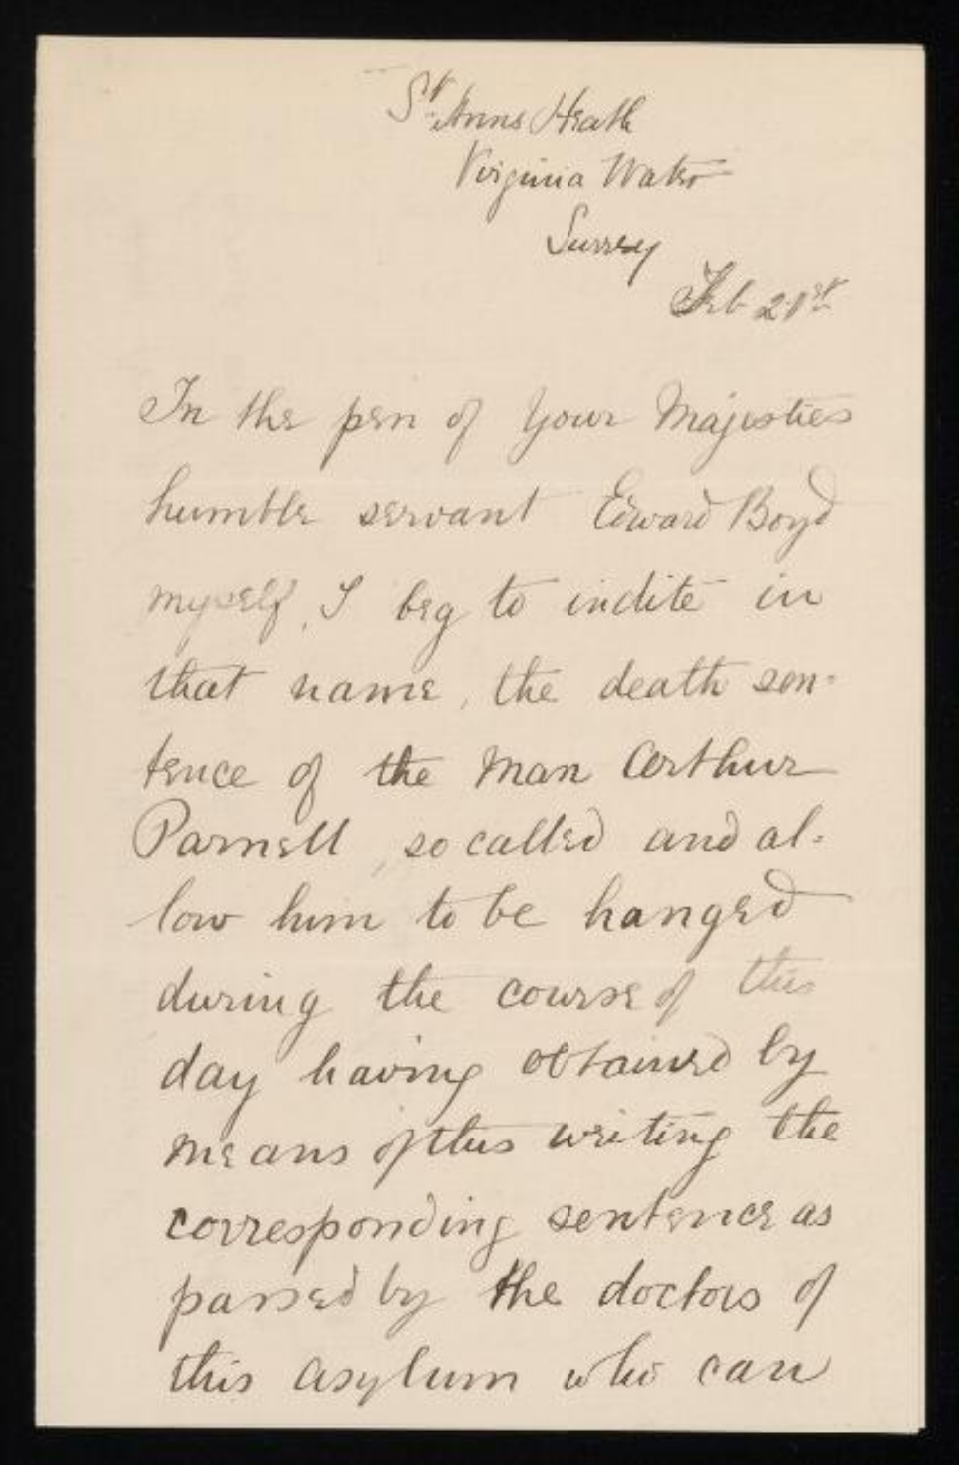 St. Anns Heath
Virginia Water
Surrey
Feb 21st
In the pen of Your Majesties
humble servant Edward Boyd
myself, I beg to indite in
that name, the death sen-
tence of the Man Arthur
Parnell, so called and al-
low him to be hanged
during the course of this
day having obtained by
means of this writing the
corresponding sentence as
passed by the doctors of
this asylum who can